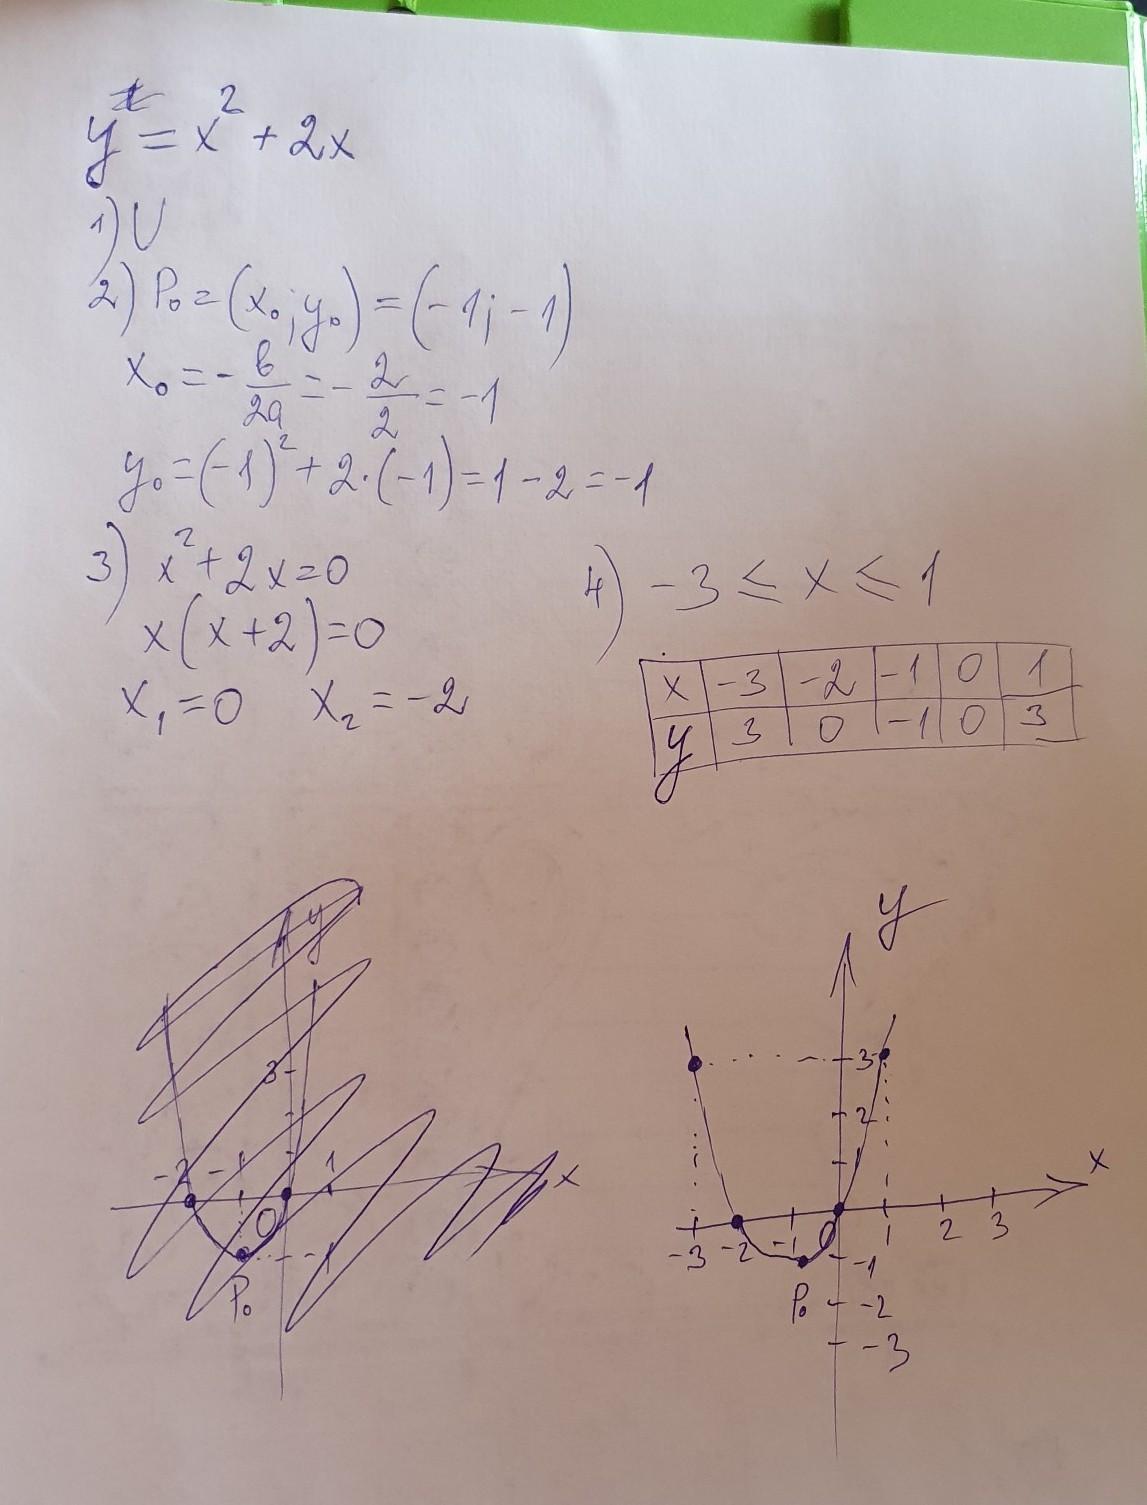 y = x² + 2x
1) U
2) P₀ = (x₀; y₀) = (-1; -1)
x₀ = - b/2a = - 2/2 = -1
y₀ = (-1)² + 2·(-1) = 1 - 2 = -1
3) x² + 2x = 0
x(x+2) = 0
x₁ = 0 x₂ = -2
4) -3 ≤ x ≤ 1
x -3 -2 -1 0 1
y 3 0 -1 0 3
y
3
-2 -1 1 x
0
-1
P₀
y
3
2
1
x
-3 -2 -1 0 1 2 3
-1
P₀ -2
-3